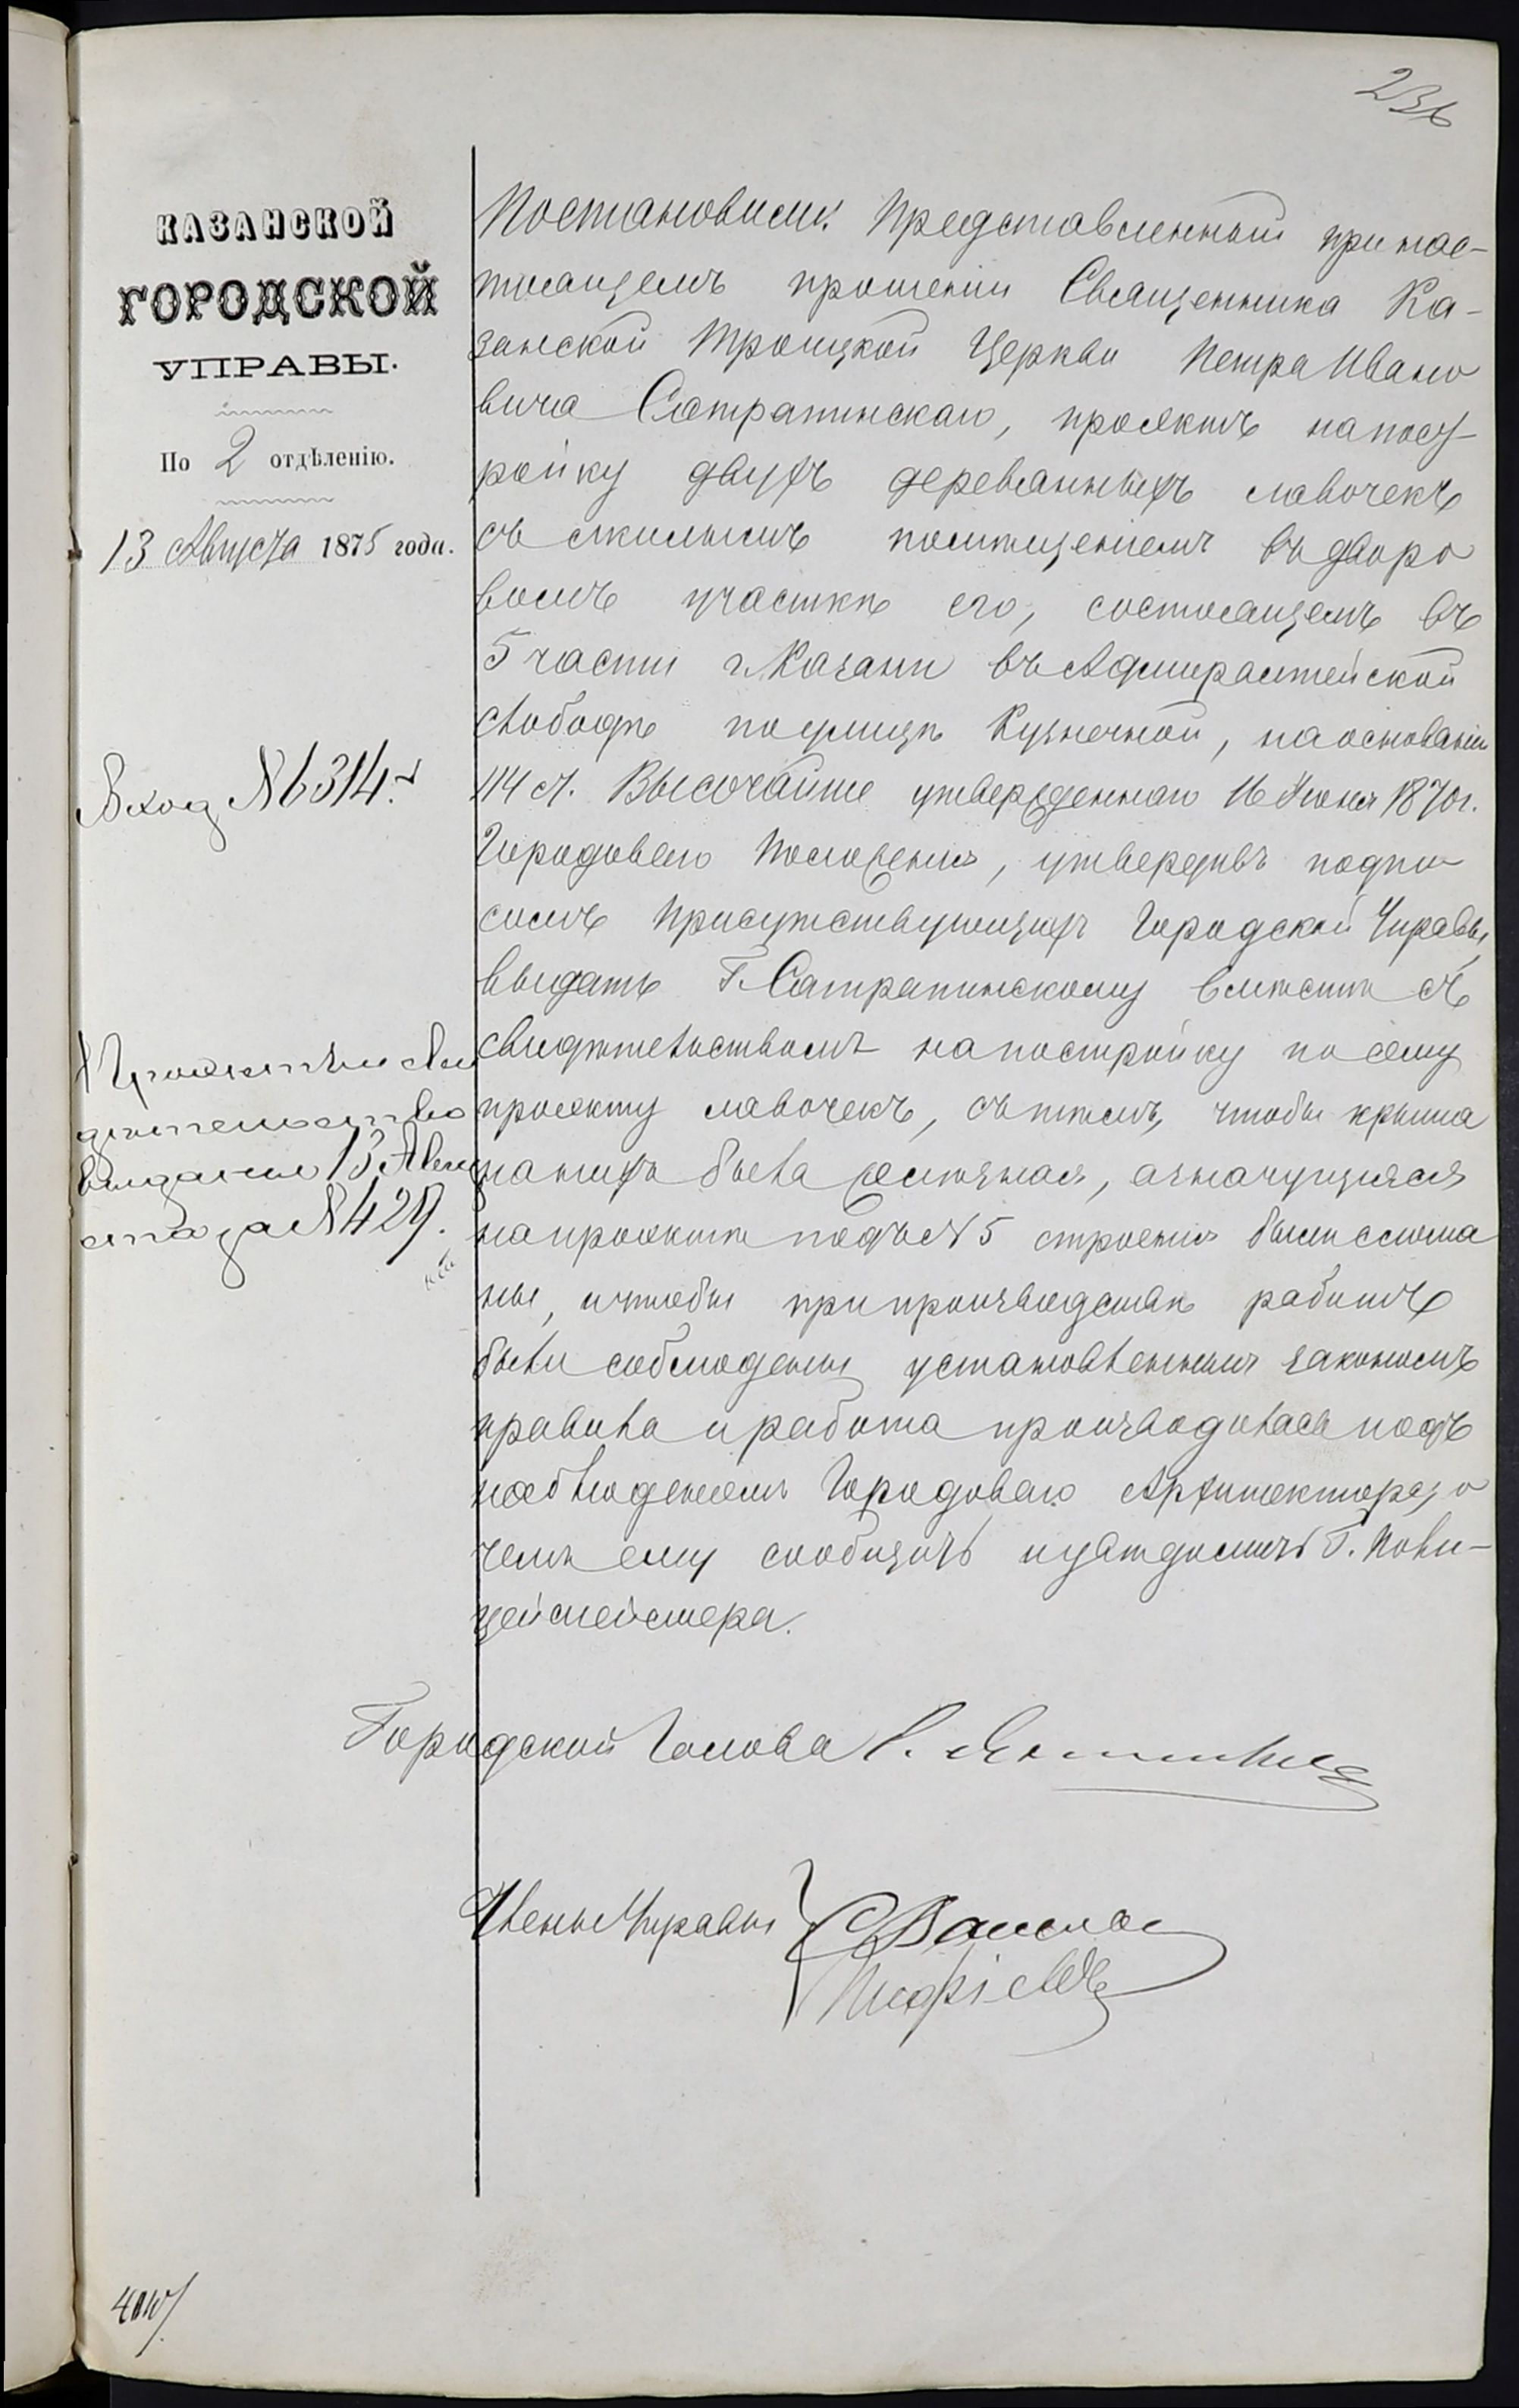 236
КАЗАНСКОЙ
ГОРОДСКОЙ
УПРАВЫ.
По 2 отдѣленію.
13 Августа 1875 года.
Вход. № 6314.
Проэктъ и сви
дѣтельство
выданые 13 Авгу
ста за № 429.
Постановили: Представленный при нас-
тоящемъ прошеніи Священника Ка-
занской Троицкой Церкви Петра Ивано
вича Сатрапинскаго, проэктъ на пост
ройку двухъ деревянныхъ лавочекъ
съ жилымъ помѣщеніемъ въ дворо
вомъ участкѣ его, состоящемъ въ
5 части г. Казани въ Адмиралтейской
слободѣ по улицѣ Кузнечной, на основаніи
114 ст. Высочайше утвержденнаго 16 Іюня 1870 г.
Городоваго Положенія, утвердивъ подпи
сомъ Присутствующихъ Городской Управы,
выдать Г. Сатрапинскому вмѣстѣ съ
свидѣтельствомъ на постройку по сему
проэкту лавочекъ, съ тѣмъ, чтобы крыша
на нихъ была желѣзная, а значущіяся
на проэктѣ подъ № 5 строенія были слома
ны, и чтобы при производствѣ работъ
были соблюдены установленныя закономъ
правила и работа производилась подъ
наблюденіемъ Городоваго Архитектора, о
чемъ ему сообщить и увѣдомить Г. Поли-
цеймейстера.
Городской Голова
Члены Управы